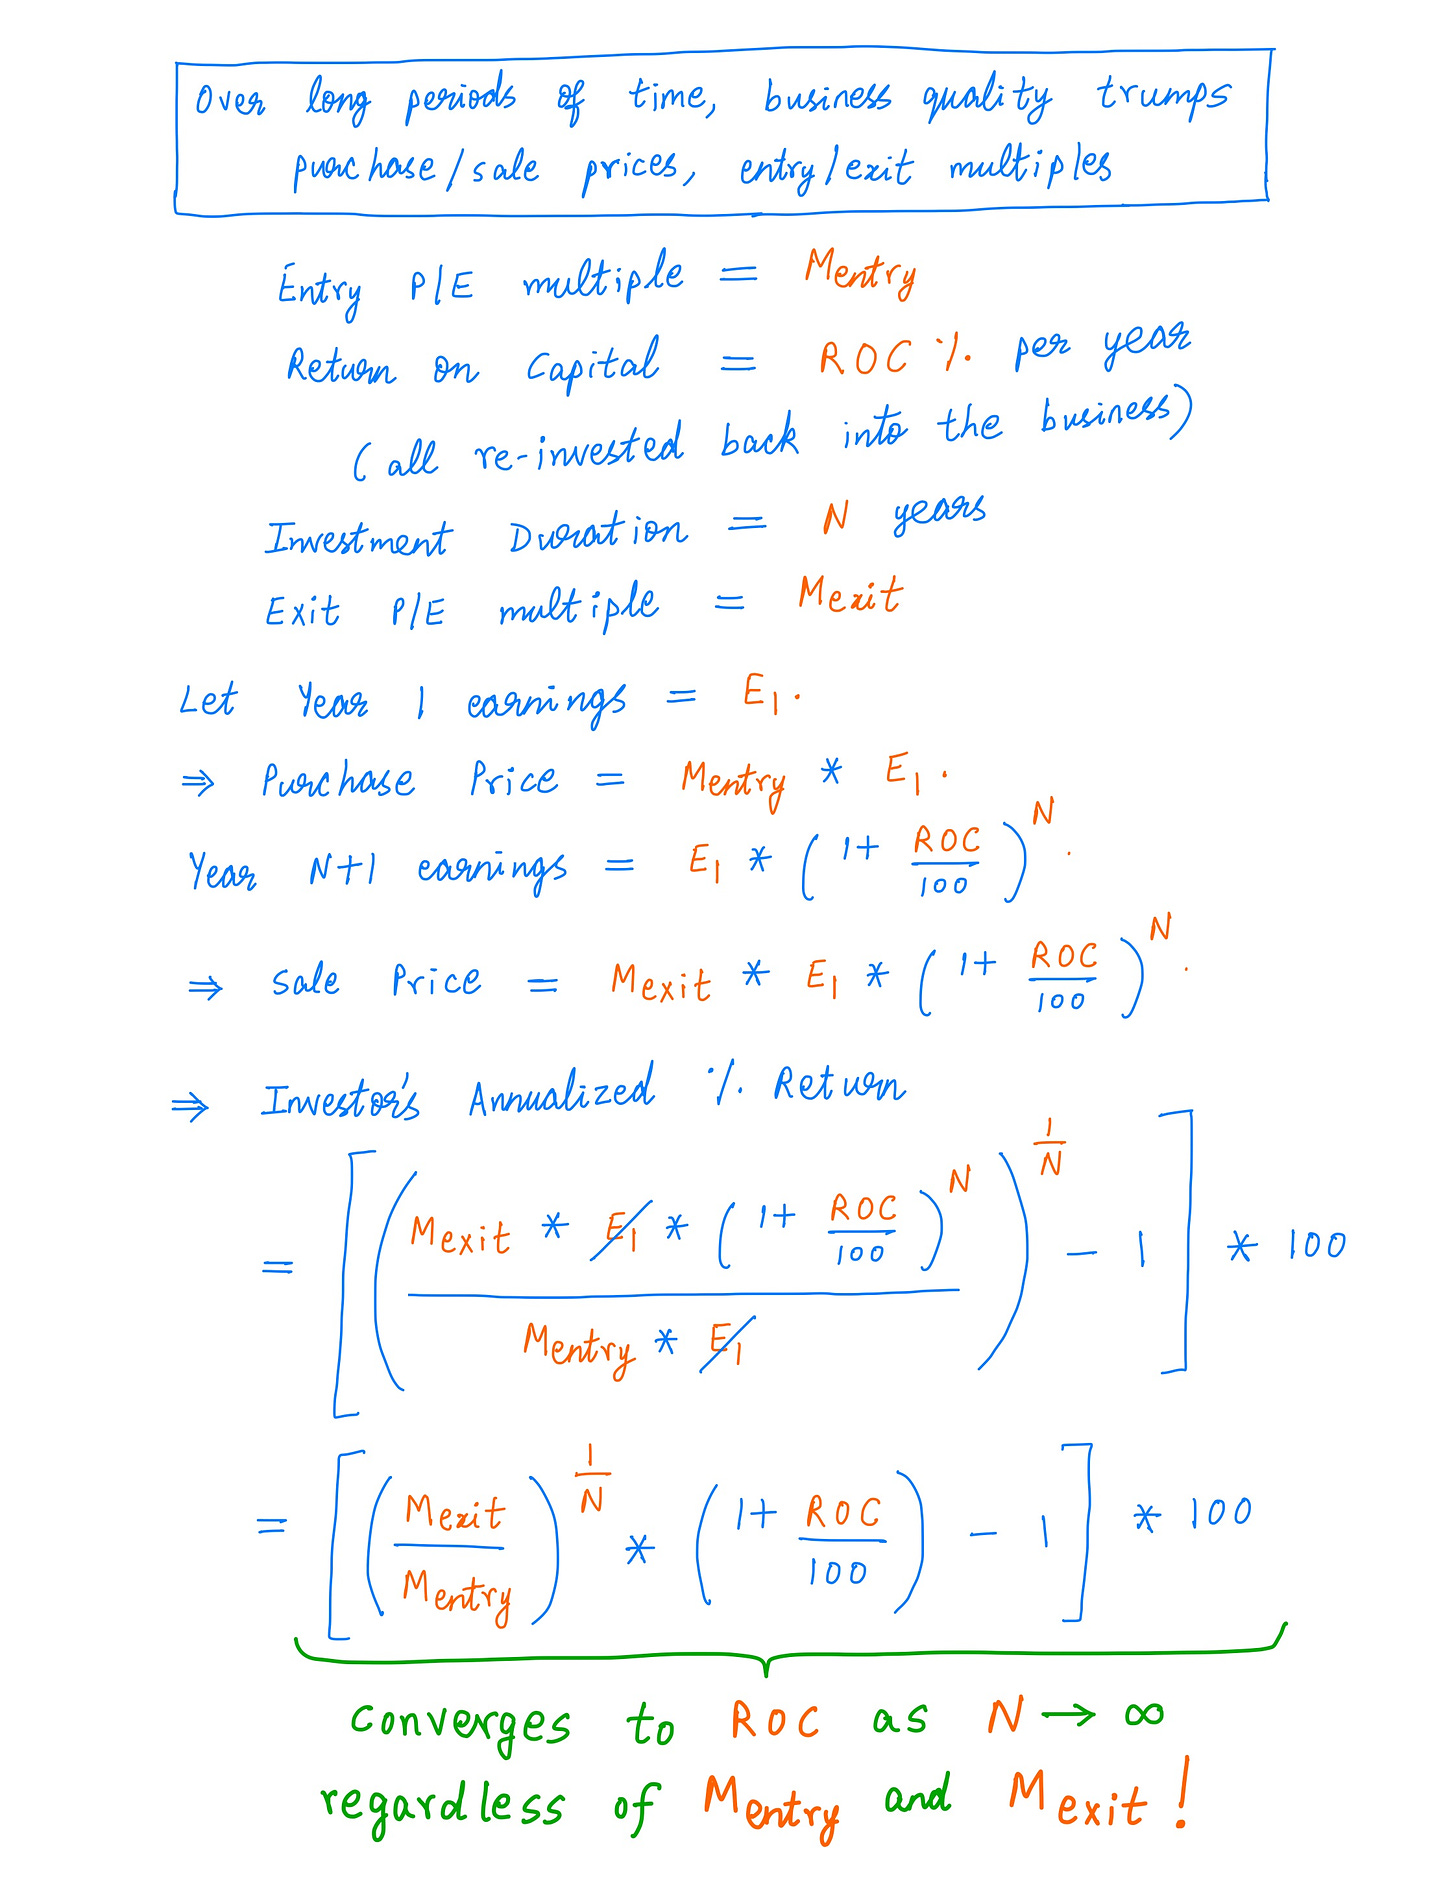 Over long periods of time, business quality trumps
purchase/sale prices, entry/exit multiples
Entry P/E multiple = Mentry
Return on Capital = ROC % per year
(all re-invested back into the business)
Investment Duration = N years
Exit P/E multiple = Mexit
Let Year 1 earnings = E₁.
⇒ Purchase Price = Mentry * E₁.
Year N+1 earnings = E₁ * (1 + ROC/100)^N.
⇒ Sale Price = Mexit * E₁ * (1 + ROC/100)^N.
⇒ Investor's Annualized % Return
= [((Mexit * E₁ * (1 + ROC/100)^N) / (Mentry * E₁))^(1/N) − 1] * 100
= [(Mexit/Mentry)^(1/N) * (1 + ROC/100) − 1] * 100
converges to ROC as N → ∞
regardless of Mentry and Mexit!